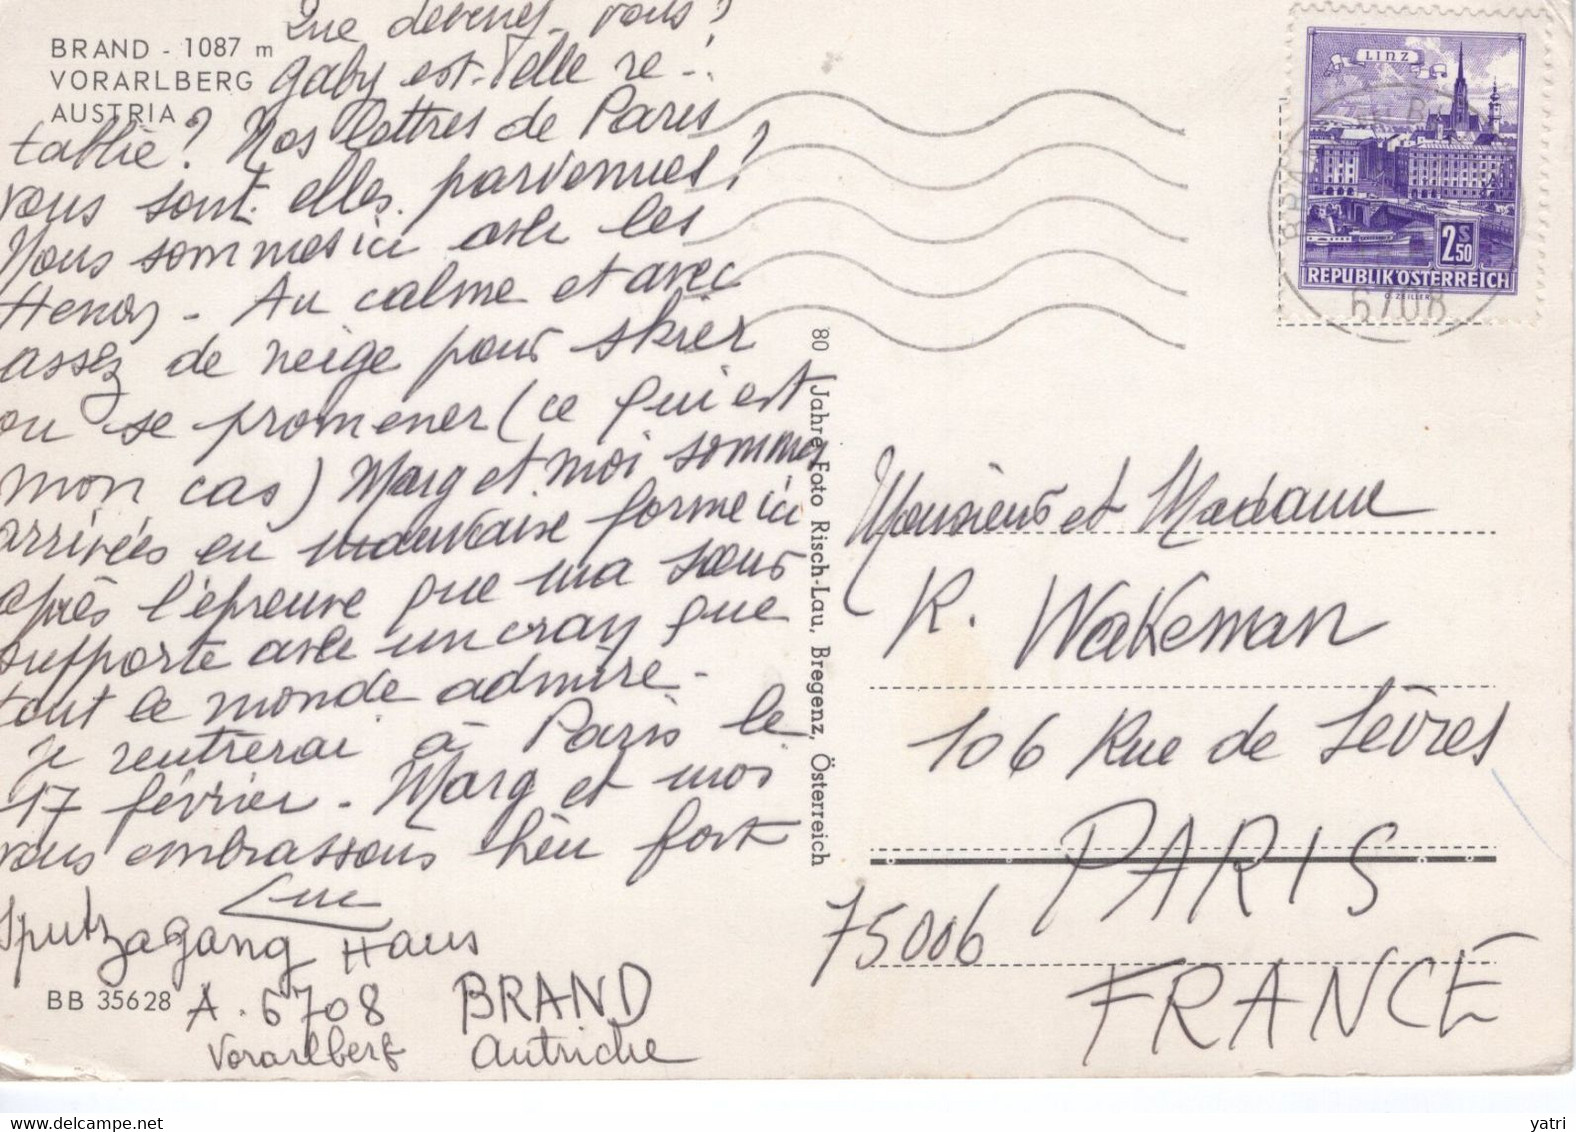 BRAND - 1087 m
VORARLBERG
AUSTRIA
Que devenez-vous?
Gaby est-elle ré-
tablie? Nos lettres de Paris
vous sont-elles parvenues?
Nous sommes ici avec les
- Au calme et avec
assez de neige pour skier
ou se promener (ce qui est
mon cas) Marg et moi sommes
arrivées en mauvaise forme ici
après l'épreuve que ma sœur
supporte avec un cran que
tout le monde admire -
je rentrerai à Paris le
17 février - Marg et moi
vous embrassons bien fort
Luc
Haus
BB 35628
A. 6708 BRAND
Vorarlberg Autriche
80 Jahre Foto Risch-Lau, Bregenz, Österreich
LINZ
2S50
REPUBLIK ÖSTERREICH
O. ZEILLER
6708
Monsieur et Madame
R. Wakeman
106 Rue de Sèvres
PARIS
75006
FRANCE
yatri